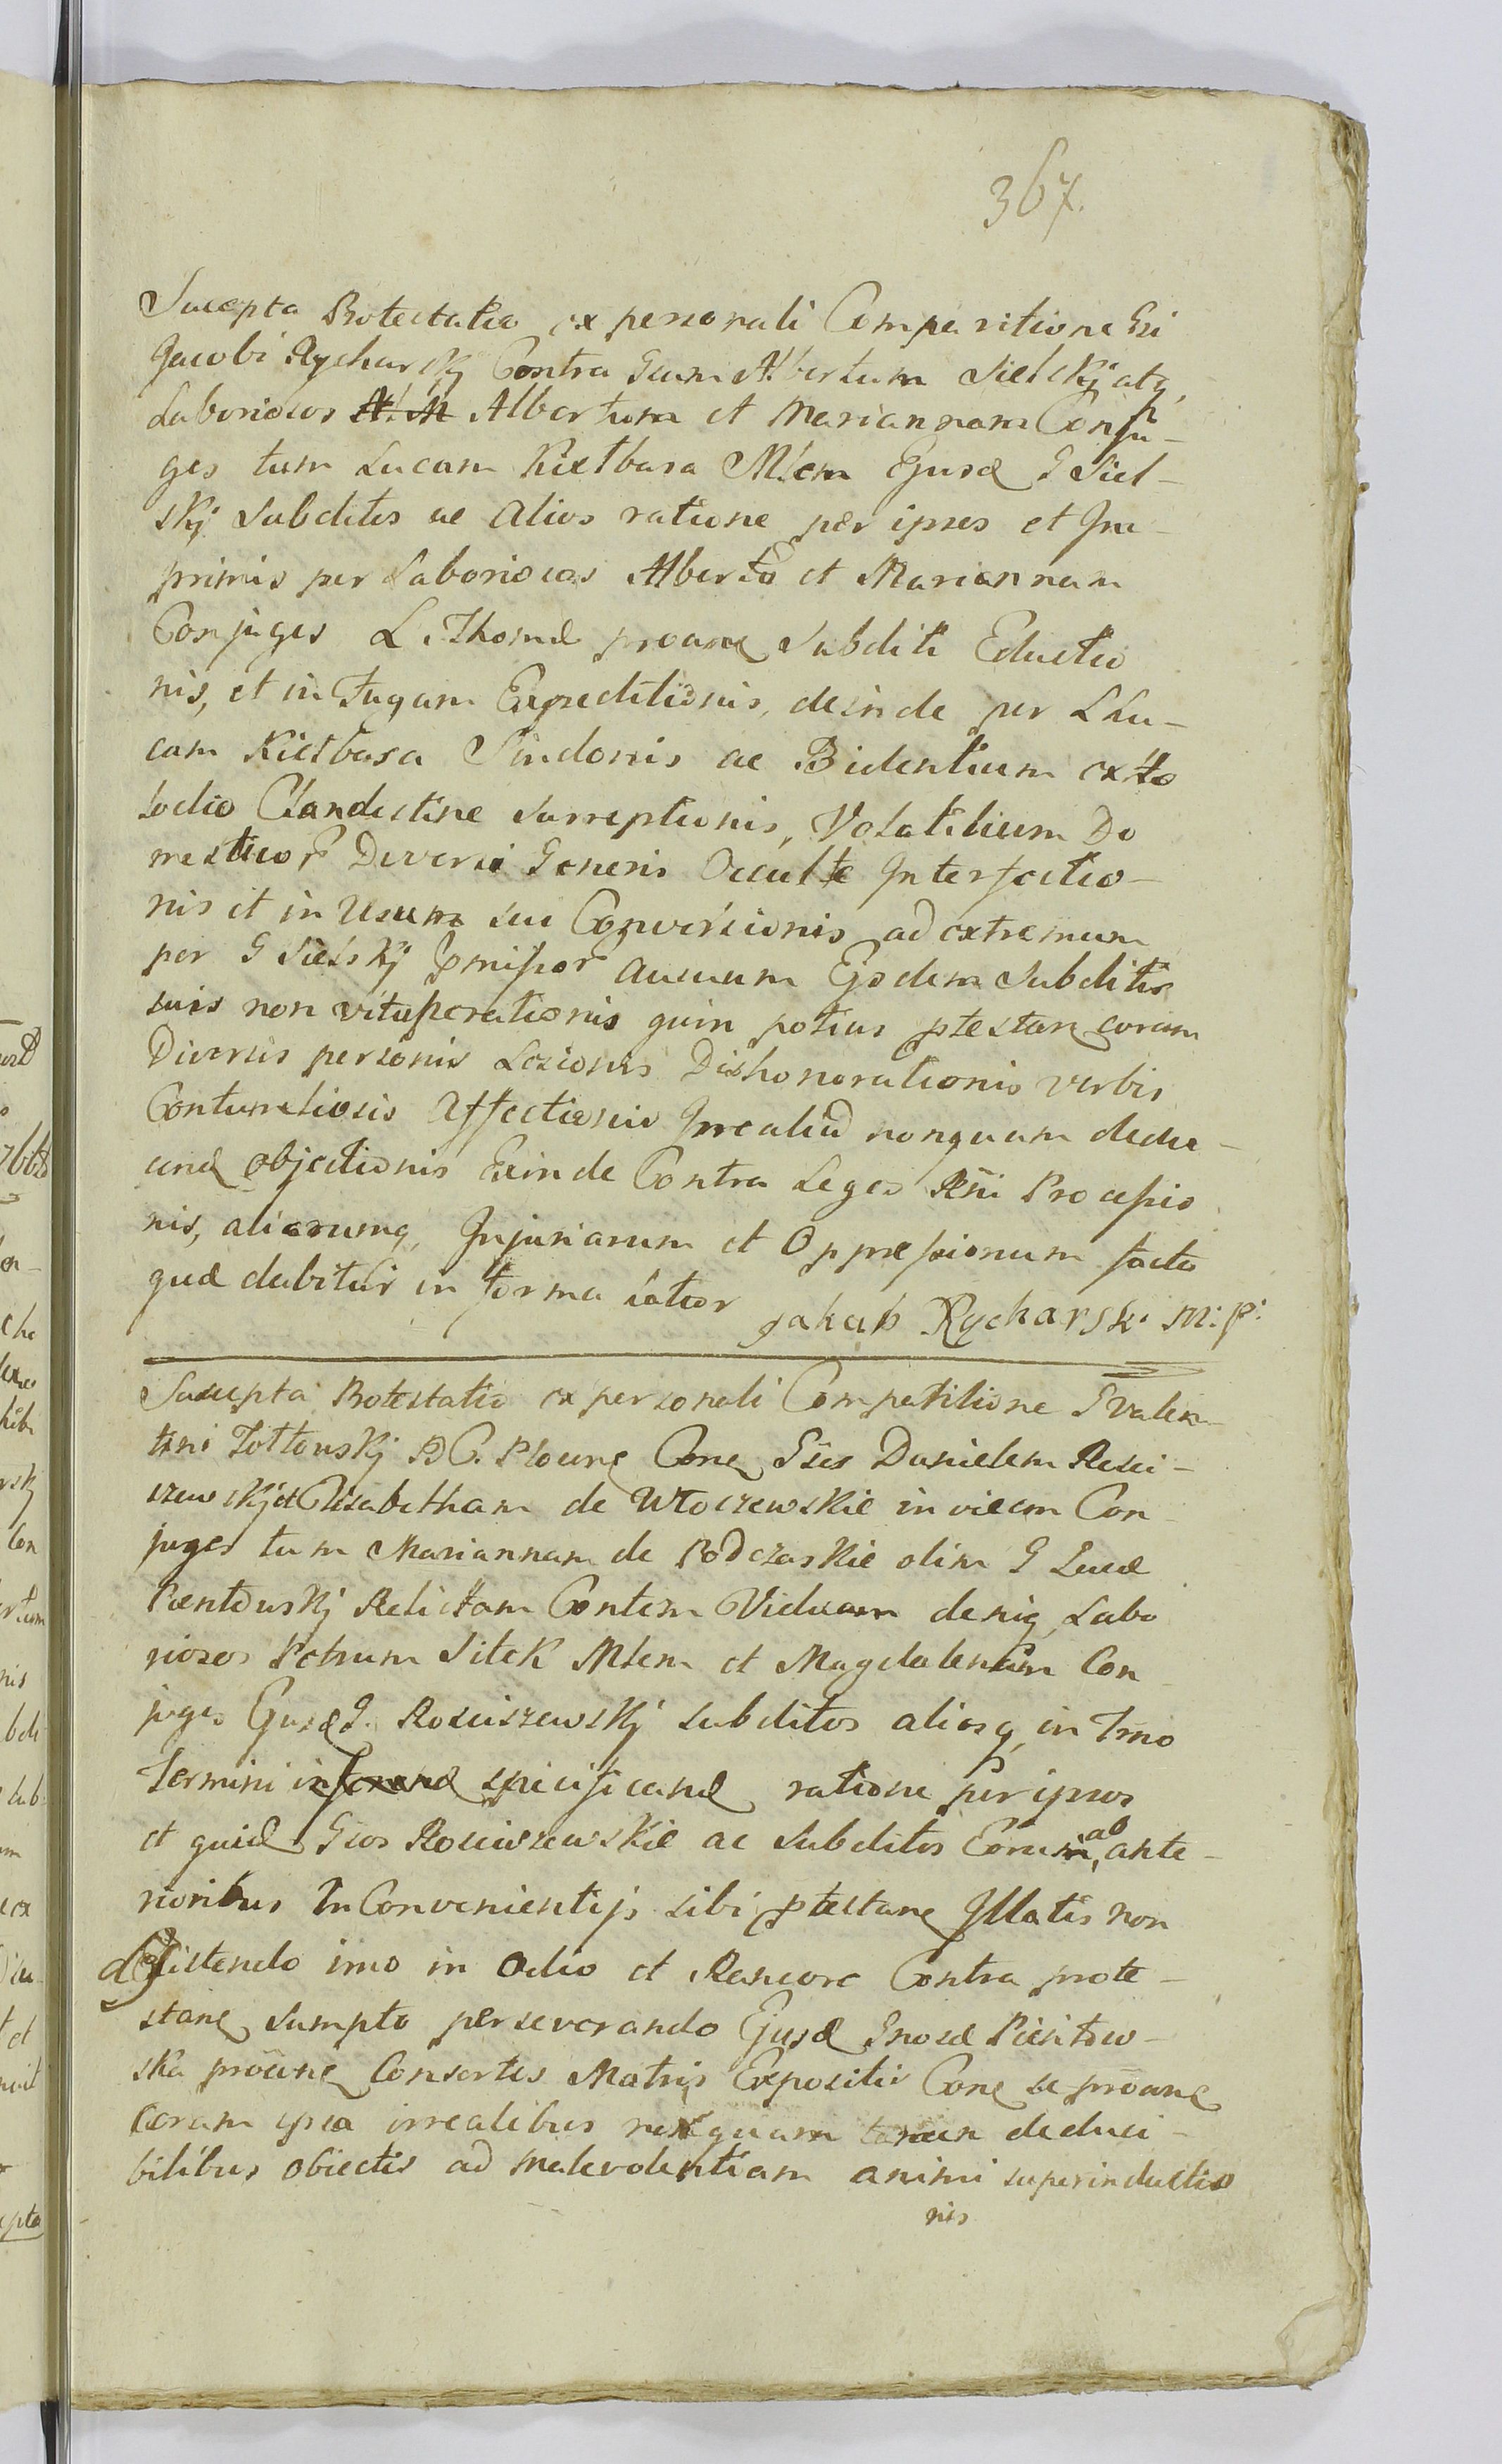 367.
Suscepta Protestatio ex personali Comparitione Gsi
Jacobi Rycharskj Contra Gsum Albertum Sielskj atq,
Laboriosos Albertum et Mariannam Conju-
ges tum Lucam Kiełbasa Mlem Ejusd G Siel-
skj Subditos ac Alios ratione per ipsos et Im-
primis per Laboriosos Alberto et Mariannam
Conjuges L. Thomæ proane Subditi Eductio
nis, et in Fugam Expeditionis, deinde per L Lu-
cam Kiełbasa Sindonis ac Bidentium ex
Clandestine Surreptionis, Volatilium Do
mesticor Diversi Generis Occulte Interfectio-
nis et in Usum sui Conversionis ad extremum
per G Sielskj pmissor ausuum Ejsdem Subditis
suis non vituperationis quin potius ptestan coram
Diversis personis Lesionis Dishonorationis verbis
Contumeliosis Affectionis Irrealiu nonquam dedu-
cend objectionis Exinde Contra Leges Rni Processio
nis, aliorumq, Injuriarum et Oppressionum facta
quæ dabitur in forma latior Jakub Rycharski m: p:
Suscepta Protestatio ex personali Comparitione G Valen-
tini Zołtowskj B C. Plocne Cone Gses Danielem Rosci-
szewskj et Elisabetham de Włoczewskie invicem Con-
juges tum Mariannam de Podczaskie olim G Lucæ
Relictam Contem Viduam deniq, Labo
riosos Petrum Sitek Mlem et Magdalenam Con
juges Ejusd G. Rosciszewskj subditos aliosq, in Tmo
Termini specificand ratione per ipsos
et quid Gsos Rosciszewskie ac Subditos Eorum ab ante-
rioribus InConvenientijs sibi ptestane Illatis non
desistendo imo in Odio et Rancore Contra prote-
stane sumpto perseverando Ejusd Gnosæ
ska proane Consortis Matris Expositis Cone se proane
coram ipsa irrealibus nusquam deduci-
bilibus obiectis ad malevolentiam animi superinductio
nis